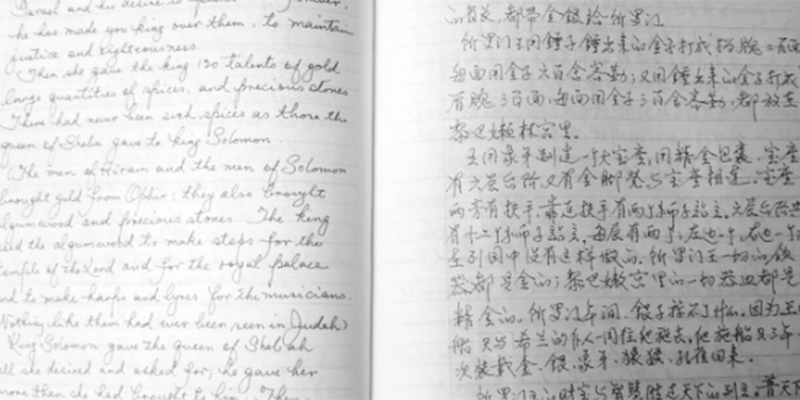 Israel and his desire to
he has made you king over them, to maintain
justice and righteousness.
Then she gave the king 120 talents of gold
large quantities of spices, and precious stones
There had never been such spices as those the
queen of Sheba gave to king Solomon.
(The men of Hiram and the men of Solomon
brought gold from Ophir; they also brought
algumwood and precious stones. The king
used the algumwood to make steps for the
temple of the Lord and for the royal palace
and to make harps and lyres for the musicians.
Nothing like them had ever been seen in Judah)
King Solomon gave the queen of Sheb ah
all she desired and asked for; he gave her
more than she had brought to him. Then
的省长,都带金银给所罗门
所罗门王用锤子锤出来的金子打成挡牌二百面
每面用金子六百舍客勒;又用锤出来的金子打成
盾牌三百面,每面用金子三百舍客勒,都放在
黎巴嫩林宫里.
王用象牙制造一个大宝座,用精金包裹.宝座
有六层台阶又有金脚凳与宝座相连.宝座
两旁有扶手,靠近扶手有两个狮子站立.六层台阶上
有十二个狮子站立,每层有两个,左边一个,右边一个
在列国中没有这样做的.所罗门王一切的饮
器都是金的;黎巴嫩宫里的一切器皿都是
精金的.所罗门年间,银子算不了什么.因为王
船只与希兰的仆人一同往他施去,他施船只三年
次装载金、银、象牙、猿猴、孔雀回来.
所罗门王的财宝与智慧胜过天下的列王.普天下